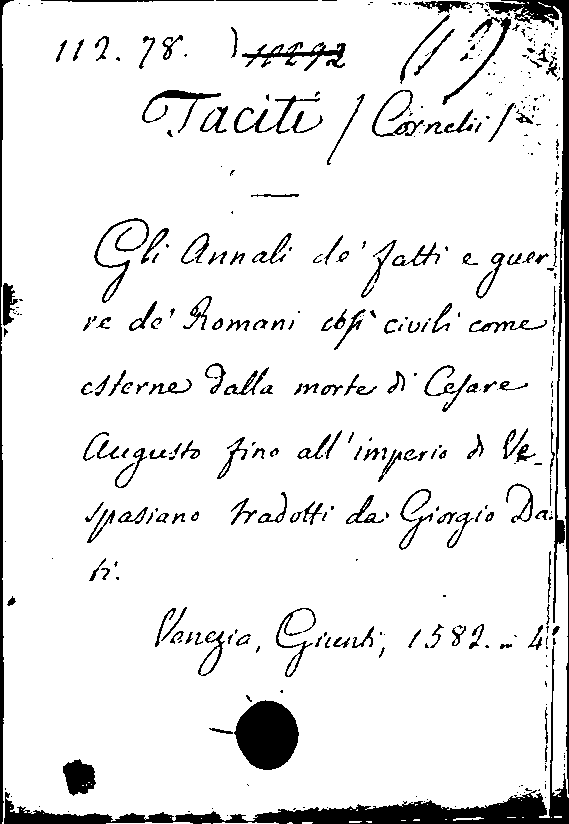 112. 78. ) 11292 (12)
Taciti / Cornelii /
Gli Annali de' fatti e guer-
re de' Romani così civili come
esterne dalla morte di Cesare
Augusto fino all'imperio di Ve-
spasiano tradotti da Giorgio Da
ti.
Venezia, Giunti, 1582. 4°